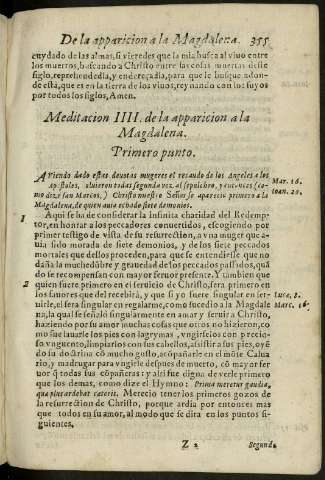 De la apparicion a la Magdalena. 355
cuydado de las almas, si vieredes que la mia busca al vivo entre
los muertos, buscando a Christo entre las cosas muertas deste
siglo, reprehendedla, y endereçadla, para que le busque adon-
de està, que es en la tierra de los vivos, reynando con los suyos
por todos los siglos, Amen.
Meditacion IIII. de la apparicion a la
Magdalena.
Primero punto.
Aviendo dado estas devotas mugeres el recaudo de los Angeles a los
Apostoles, bolvieron todas segunda vez al sepulchro, y entonces (co-
mo dize san Marcos,) Christo nuestro Señor se aparecio primero a la
Magdalena, de quien avia echado siete demonios.
Mar. 16.
Ioan. 20.
1 Aqui se ha de considerar la infinita charidad del Redemp-
tor, en honrar a los peccadores convertidos, escogiendo por
primer testigo de vista de su resurrection, a vna muger que a-
via sido morada de siete demonios, y de los siete peccados
mortales que dellos proceden, para que se entendiesse que no
daña la muchedũbre y gravedad de los peccados passados, quã
do se recompensan con mayor fervor presente. Y tambien que
2 quien fuere primero en el servicio de Christo, sera primero en
los favores que del recebirà, y que si yo fuere singular en ser-
virle, el sera singular en regalarme, como sucedio a la Magdale
na, la qual se señalò singularmente en amar y servir a Christo,
haziendo por su amor muchas cosas que otros no hizieron, co
mo fue lavarle los pies con lagrymas, vngirselos con precio-
so vnguento, limpiarlos con sus cabellos, assistir a sus pies, oyẽ
do su doctrina cõ mucho gusto, acõpañarle en el mõte Calua
rio, y madrugar para vngirle despues de muerto, cõ mayor fer
vor q̃ todas sus cõpañeras: y assi fue digna de verle primero
que los demas, como dize el Hymno: Prima meretur gaudia,
quæ plus ardebat cæteris. Merecio tener los primeros gozos de
la resurrection de Christo, porque ardia por entonces mas
que todos en su amor, al modo que se dira en los puntos si-
guientes.
Luce. 8.
Marc. 16.
Z 2 Segundo